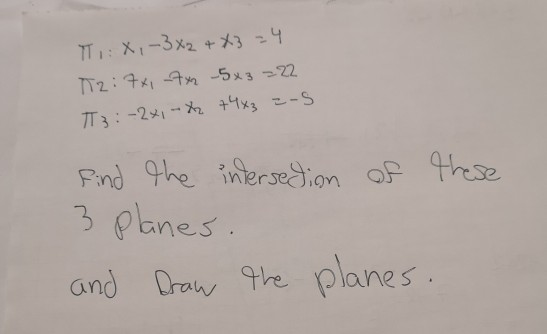 π1: x1 -3x2 + x3 = 4
π2: 7x1 -7x2 -5x3 = 22
π3: -2x1 - x2 +4x3 = -5
Find the intersection of these
3 planes.
and Draw the planes.